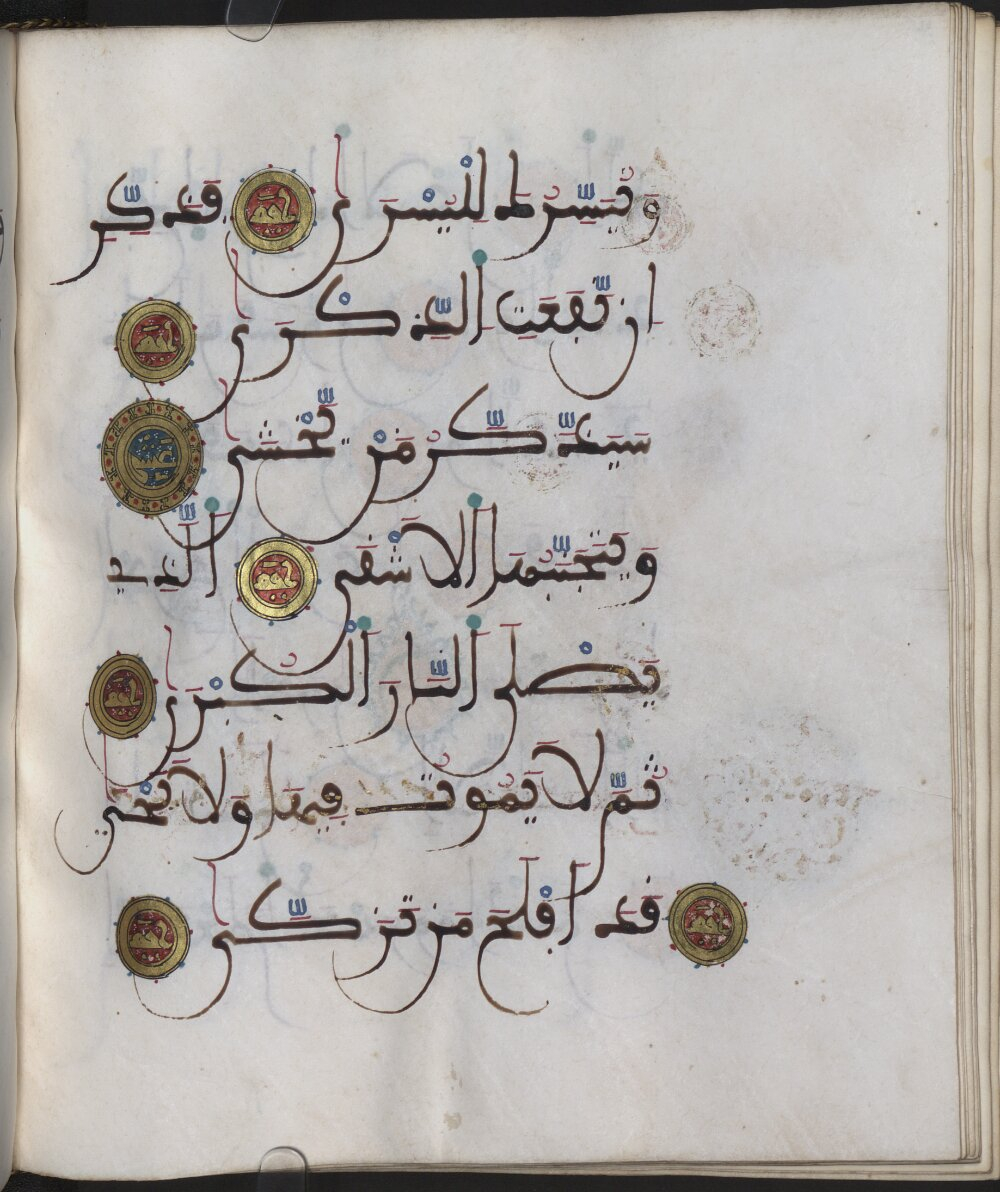 وَنُيَسِّرُكَ لِلْيُسْرَىٰ فَذَكِّرِ
اِن نَّفَعَتِ اِ۬لذِّكْرَىٰ
سَيَذَّكَّرُ مَنْ يَّخْشَىٰ
وَيَتَجَنَّبُهَا اَ۬لَاشْقَى اَ۬لذِے
يَصْلَى اَ۬لنَّارَ اَ۬لْكُبْرَىٰ
ثُمَّ لَا يَمُوتُ فِيهَا وَلَا يَحْيَىٰ
قَدَ اَفْلَحَ مَن تَزَكَّىٰ